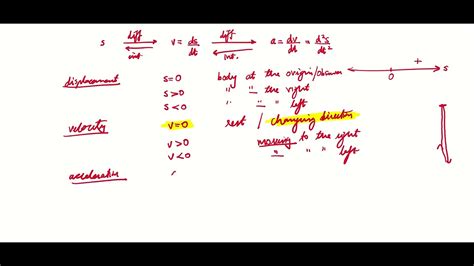 s diff int. v = ds/dt diff int. a = dv/dt = d²s/dt²
displacement s=0 body at the origin/observer
+
0 s
s>0 " " the right
s<0 " " " left
velocity v=0 rest / changing direction
v>0 moving to the right
v<0 " " " left
acceleration